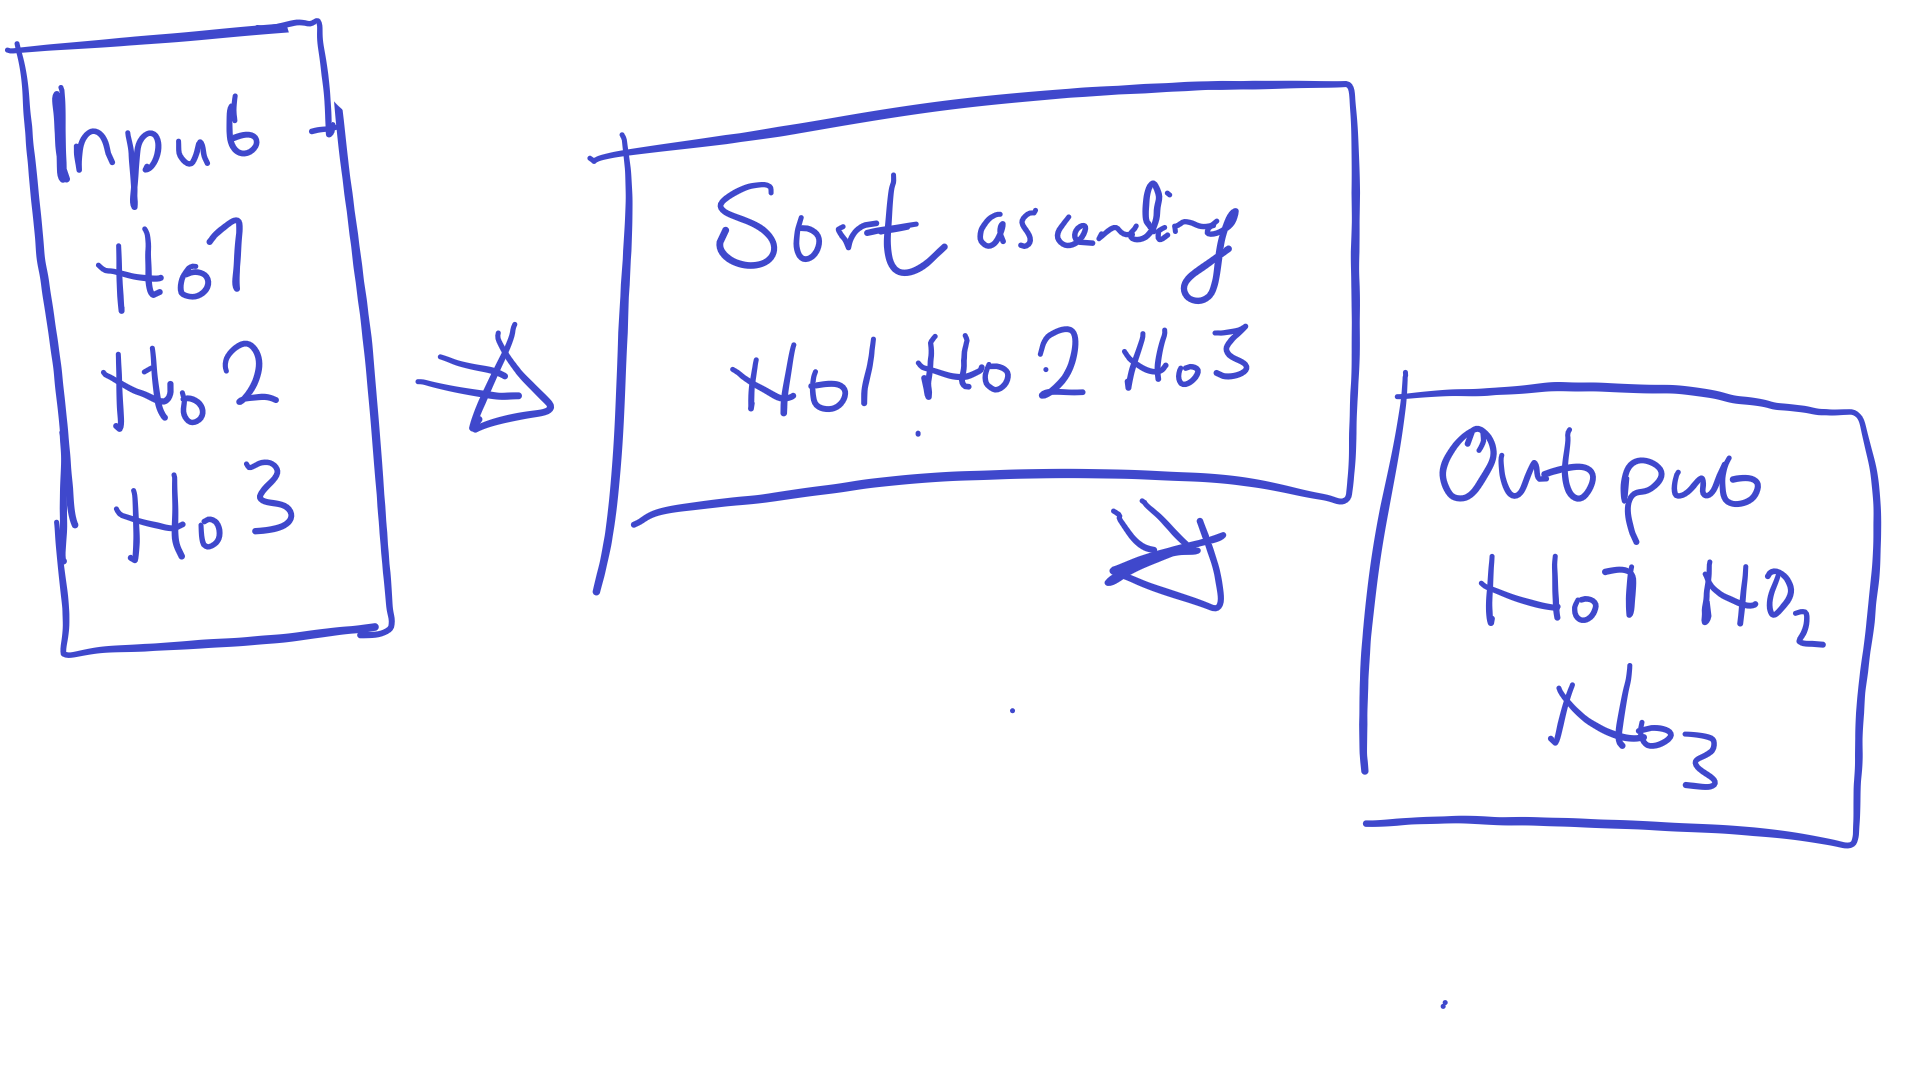 Input
No1
No2
No3
Sort ascending
No1 No2 No3
Output
No1 No2
No3